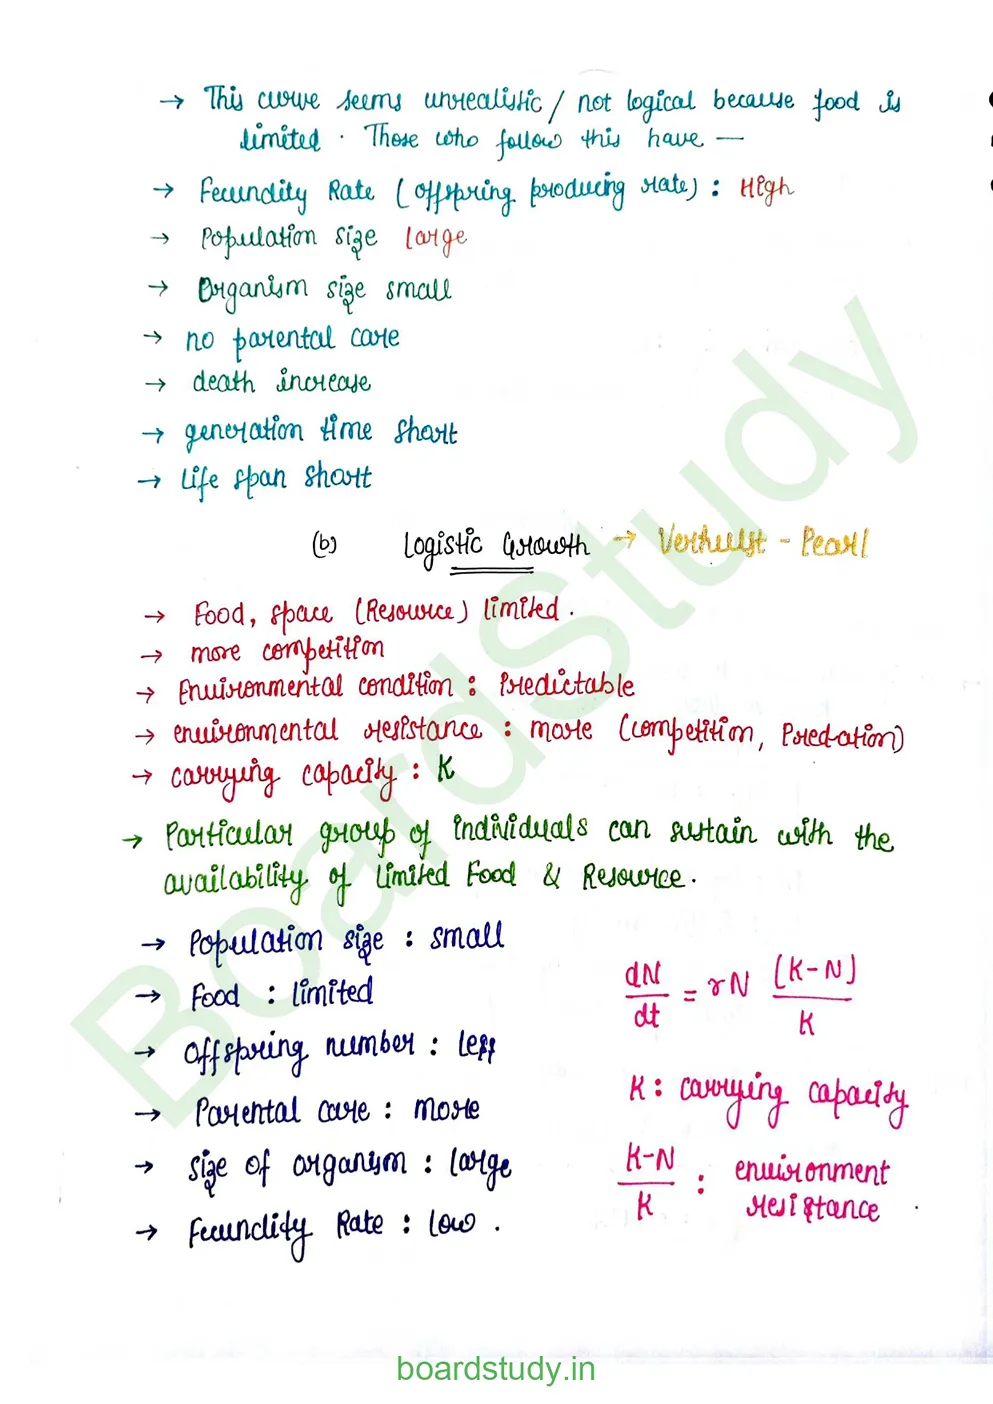 → This curve seems unrealistic / not logical because food is
limited. Those who follow this have —
→ Fecundity Rate (offspring producing rate) : High
→ Population size large
→ Organism size small
→ no parental care
→ death increase
→ generation time short
→ Life span short
(b) Logistic Growth → Verhulst - Pearl
→ Food, space (Resource) limited.
→ more competition
→ Environmental condition : Predictable
→ environmental resistance : more (competition, Predation)
→ carrying capacity : K
→ Particular group of individuals can sustain with the
availability of limited Food & Resource.
→ Population size : small
→ Food : limited
→ Offspring number : less
→ Parental care : more
→ size of organism : large
→ Fecundity Rate : low.
dN/dt = rN (K-N)/K
K : carrying capacity
K-N/K : environment
resistance.
BoardStudy
boardstudy.in